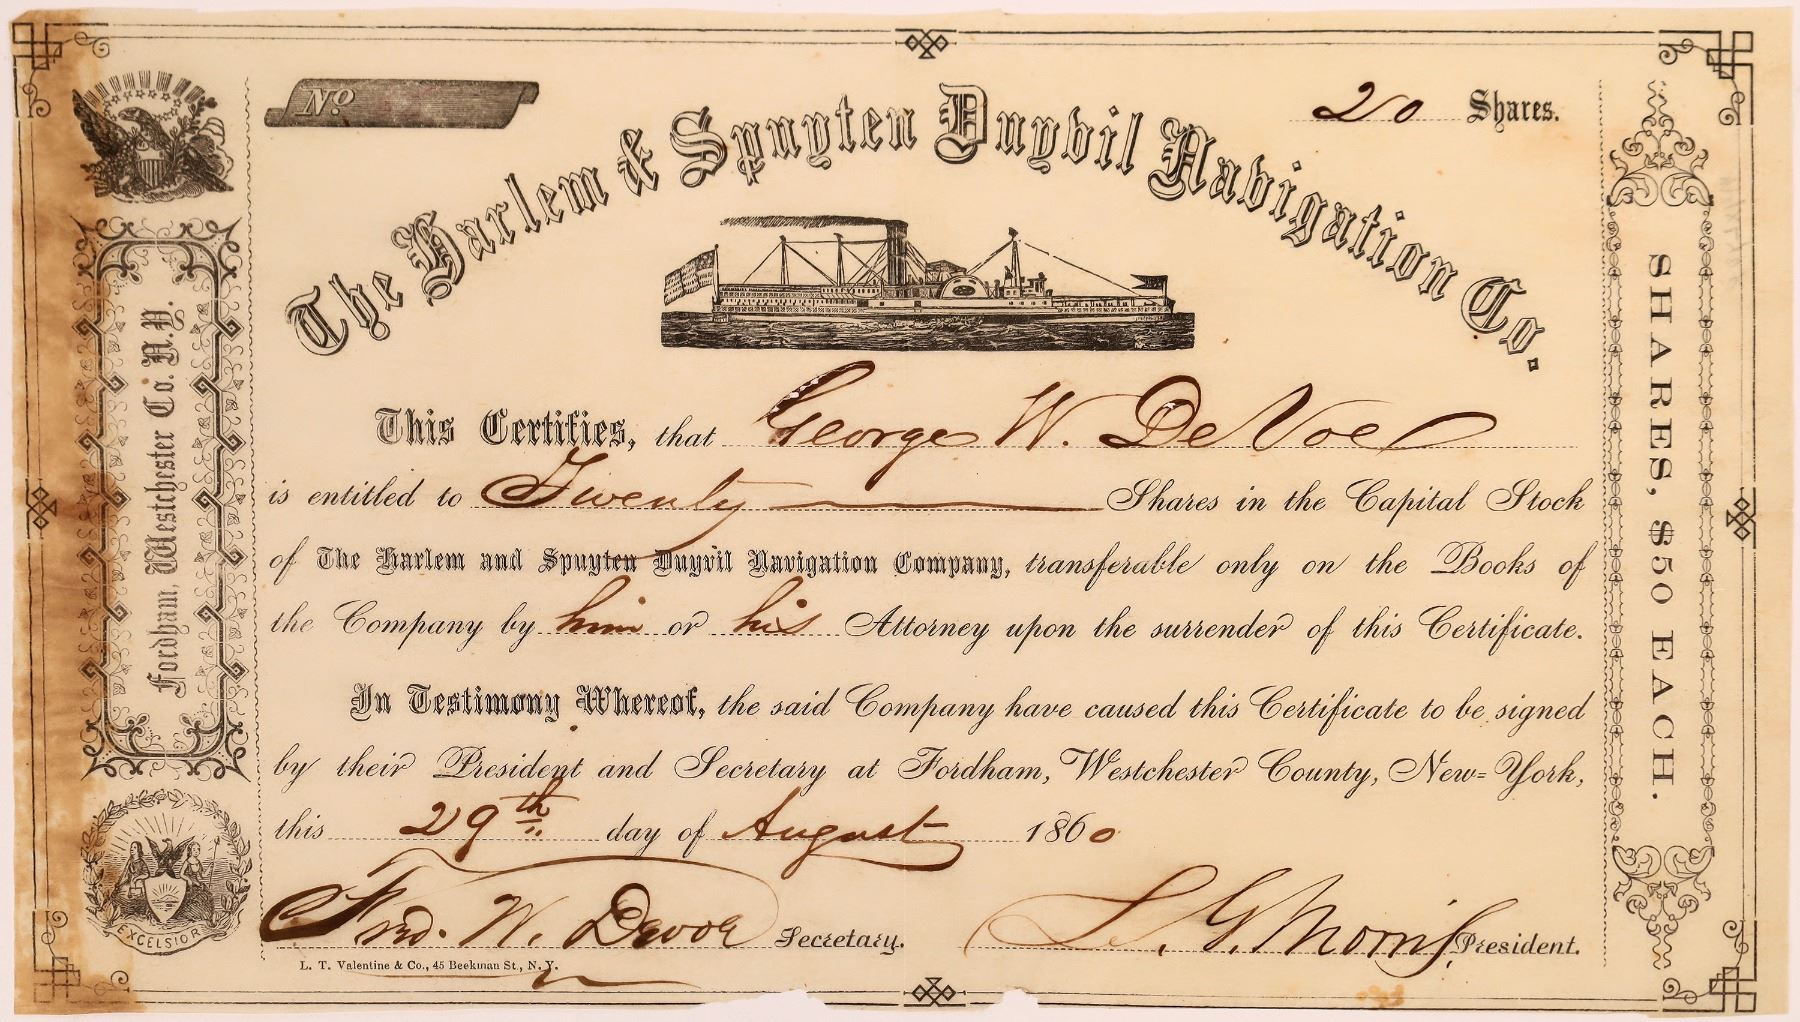 No.
20 Shares.
The Harlem & Spuyten Duyvil Navigation Co.
This Certifies, that George W. DeVoe
is entitled to Twenty Shares in the Capital Stock
of The Harlem and Spuyten Duyvil Navigation Company, transferable only on the Books of
the Company by him or his Attorney upon the surrender of this Certificate.
In Testimony Whereof, the said Company have caused this Certificate to be signed
by their President and Secretary at Fordham, Westchester County, New-York,
this 29th day of August 1860
Fred. W. Devoe Secretary.
L. G. Morris President.
L. T. Valentine & Co., 45 Beekman St., N. Y.
Fordham, Westchester Co. N.Y.
EXCELSIOR
SHARES, $50 EACH.